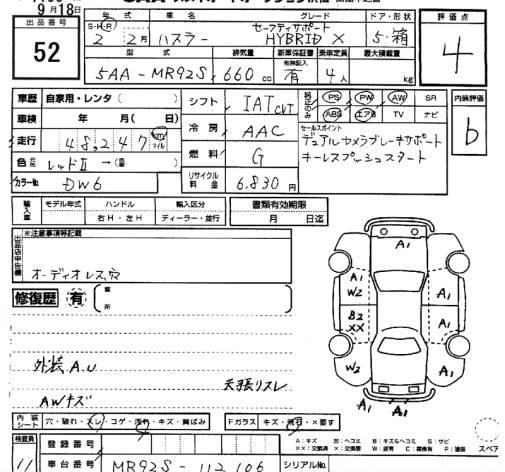 9月18日
出品番号
52
年式 車名 グレード ドア・形状
S・H・R 2年2月 ハスラー セーフティサポート HYBRID X 5・箱
型式 排気量 新車保証書 乗車定員 最大積載量
有無記入
5AA-MR92S 660cc 有 4人 kg
評価点
4
内装評価
b
車歴 自家用・レンタ( )
車検 年 月( 日)
走行 48,247 km マイル
色 レッドⅡ →(
カラーNo DW6
シフト IAT CVT
冷房 AAC
燃料 G
リサイクル料金 6.830円
PS PW AW SR
ABS エアB TV ナビ
セールスポイント
デュアルカメラブレーキサポート
キーレスプッシュスタート
輸入車 モデル年式 ハンドル 輸入区分
右H・左H ディーラー・並行
書類有効期限
月 日迄
※注意事項等記載
オーディオレス穴
修復歴 有 箇所
外装A.U
天張リスレ
AWキズ
A1
A1
W2
B2
XX
W2
A1
A1
A1
A1
A1
A1
内装シート 穴・破れ・スレ・コゲ・汚れ・キズ・黄ばみ
Fガラス キズ・飛石・×要す
検査員
11
登録番号
車台番号 MR92S-112106
シリアルNo.
A:キズ 凹:ヘコミ B:キズ&ヘコミ S:サビ
××:交換済 ×:交換要 W:波有 C:腐食有 P:塗装
スペア